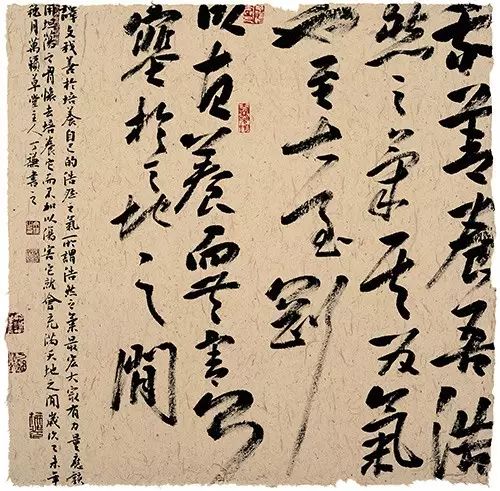 我善養吾浩
然之氣其为氣
也至大至剛
以直養而无害则
塞於天地之間
譯文我善於培養自己的浩然之氣所謂浩然之氣最宏大最有力量應該
用坦蕩之胸懷去培養它而不加以傷害它就會充滿天地之間歲次乙未年
月萬草堂主人丁謙書之